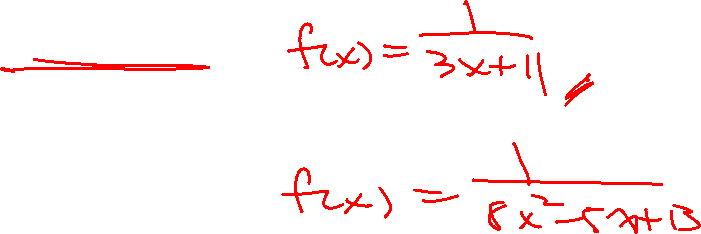 f(x) = 1/(3x+11)
f(x) = 1/(8x²-5x+13)